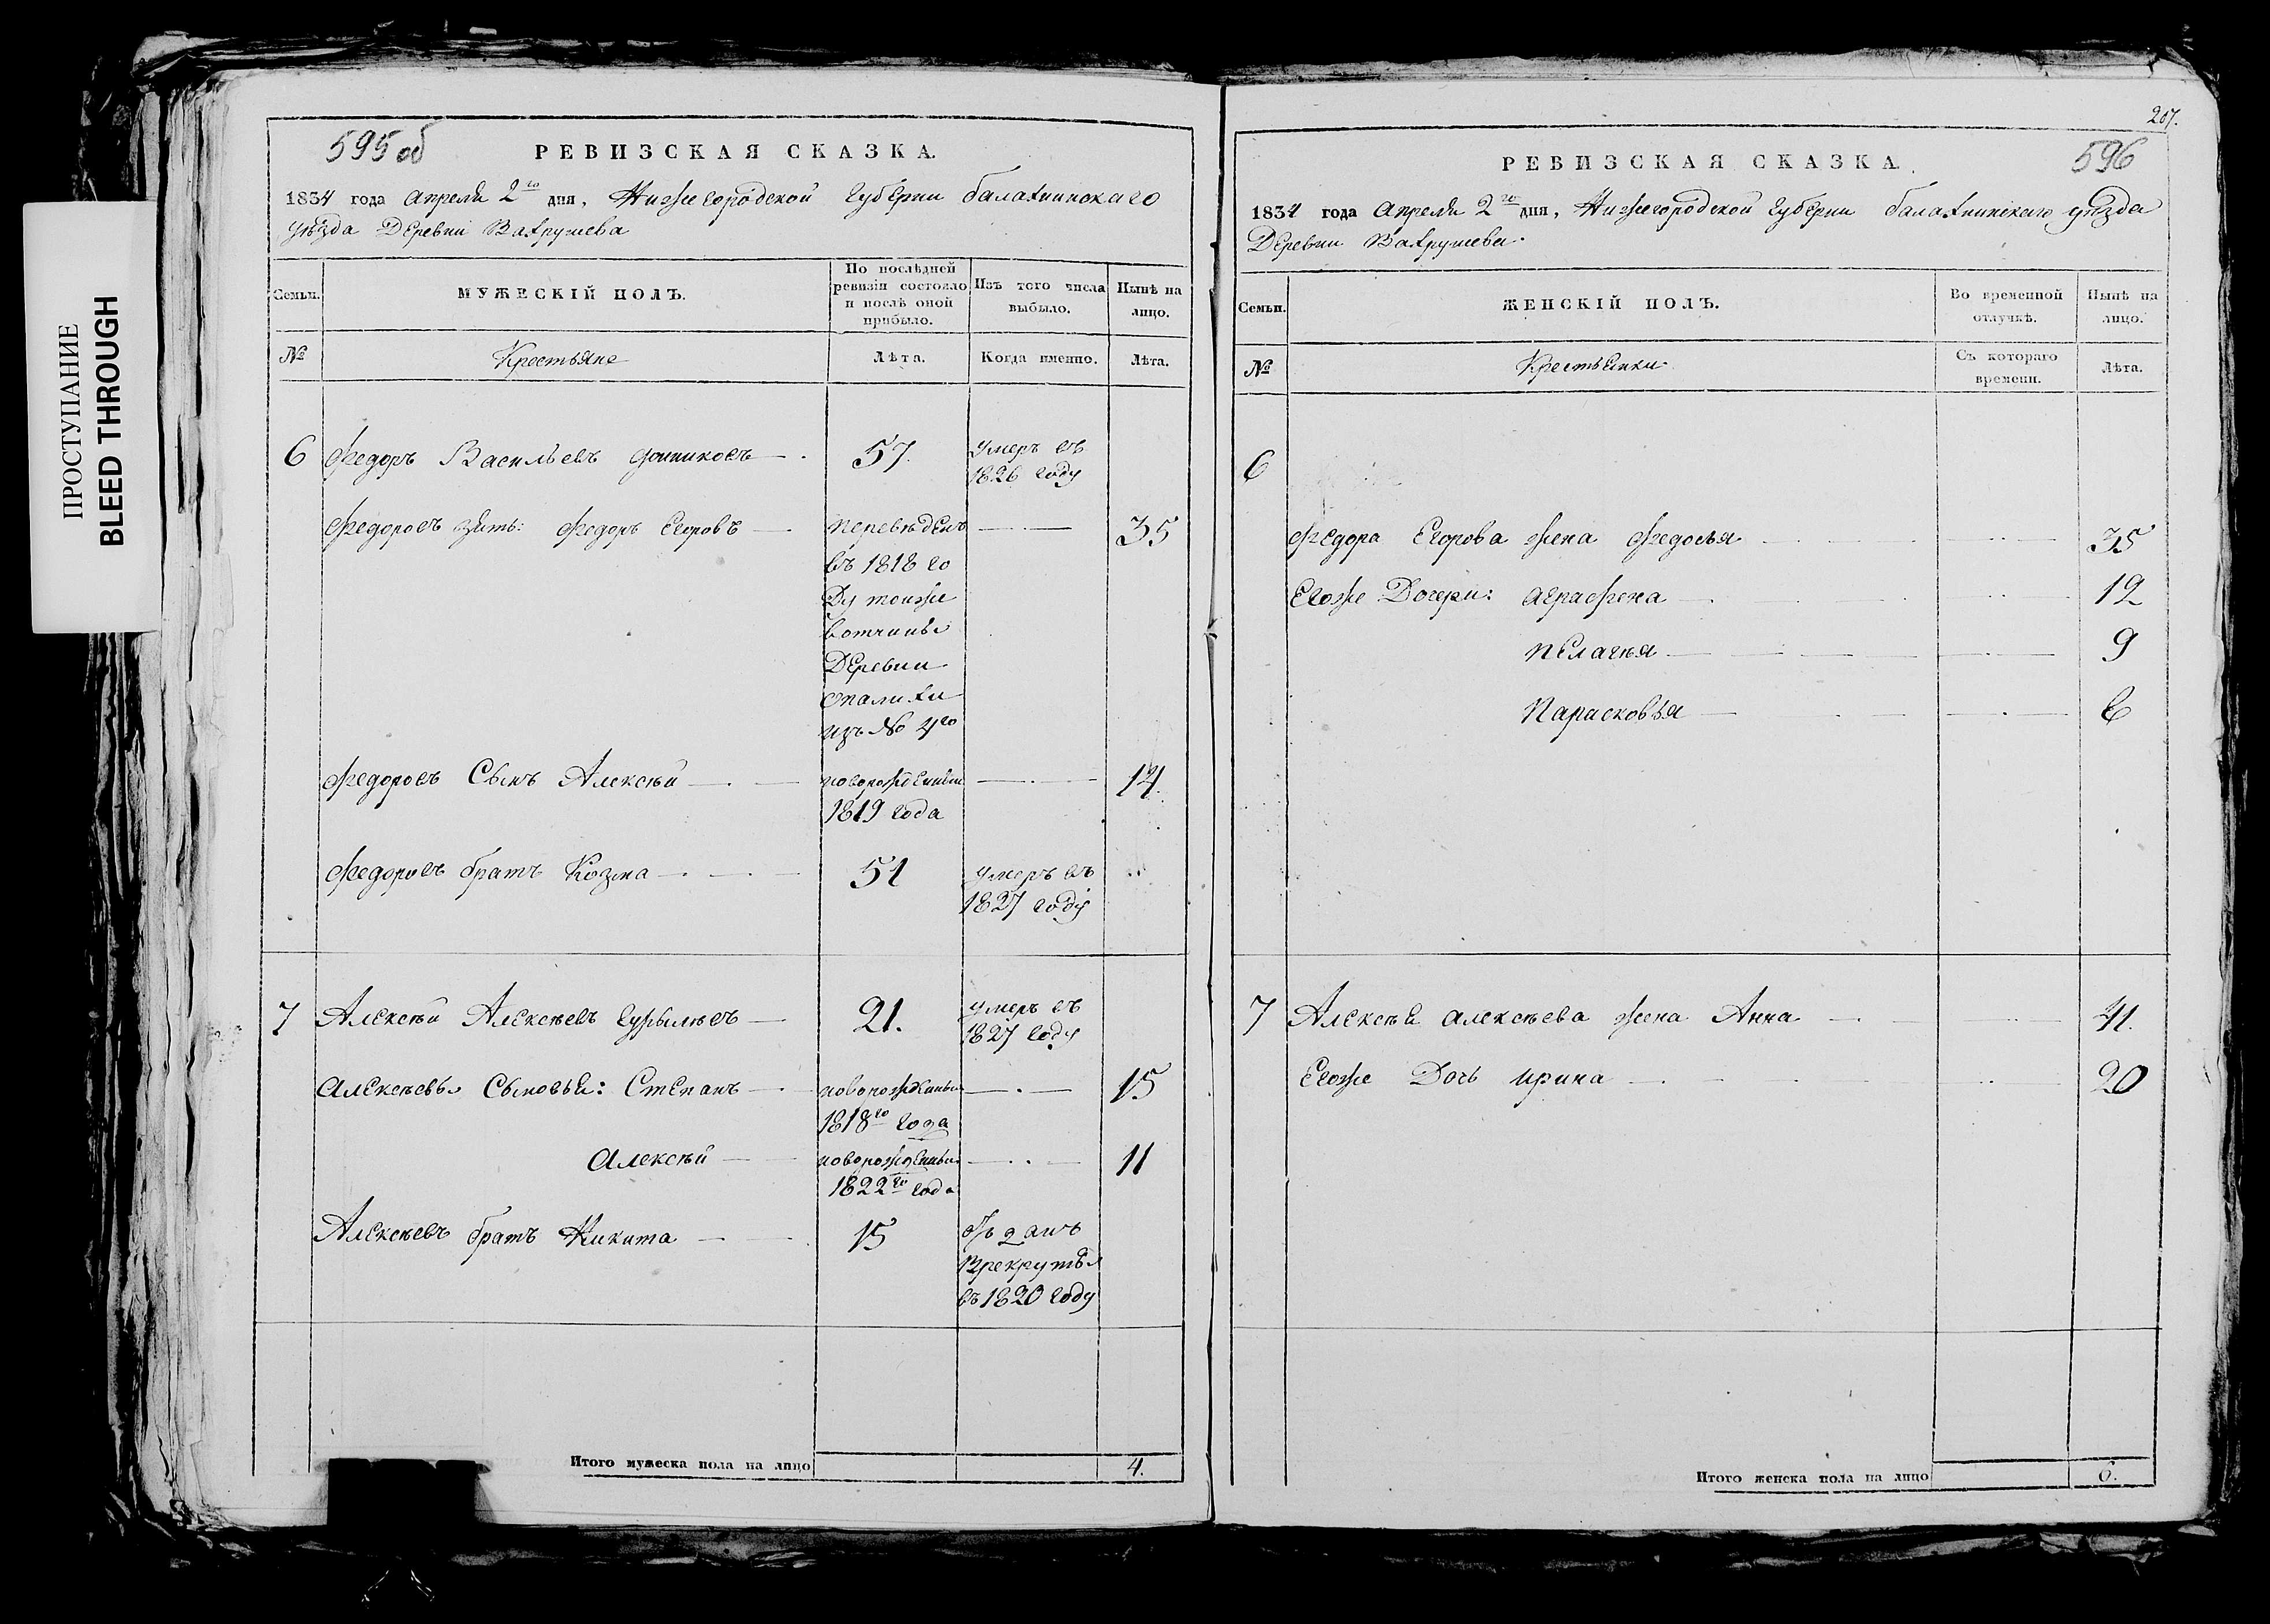 ПРОСТУПАНИЕ
BLEED THROUGH
595 об
РЕВИЗСКАЯ СКАЗКА.
1834 года апреля 2го дня, Нижегородской губернии балахнинскаго
уѣзда деревни Вахрушева
Семьи.
МУЖЕСКІЙ ПОЛЪ.
По послѣдней
ревизіи состояло
и послѣ оной
прибыло.
Изъ того числа
выбыло.
Нынѣ на
лицо.
№
Крестьяне
Лѣта.
Когда именно.
Лѣта.
6 Федоръ Васильевъ 57. умеръ въ
1826 году
Федоровъ зять: Федоръ Егоровъ переведенъ 35
въ 1818 го
ду тоиже
вотчины
деревни
опалихи
изъ № 4го
Федоровъ Сынъ Алексѣй новорожденный 14.
1819 года
Федоровъ братъ Козма 51 умеръ въ
1827 году
7 Алексѣй Алексѣевъ 21. умеръ въ
1827 году
Алексѣевы Сыновья: Степанъ новорожденный 15
1818го года
Алексѣй новорожденный 11
1822го года
Алексѣевъ братъ Никита 15 отданъ
Врекруты
въ 1820 году
Итого мужеска пола на лицо 4.
207.
596
РЕВИЗСКАЯ СКАЗКА.
1834 года апреля 2го дня, Нижегородской губернии балахнинскаго уѣзда
деревни Вахрушева.
Семьи.
ЖЕНСКІЙ ПОЛЪ.
Во временной
отлучкѣ.
Нынѣ на
лицо.
№
Крестьянки
Съ котораго
времени.
Лѣта.
6
Федора Егорова жена Федосья 35
Егоже Дочери: аграфена 12
пелагѣя 9
парасковья 6
7 Алексѣя алексѣева жена Анна 41.
Егоже Дочь ирина 20
Итого женска пола на лицо 6.